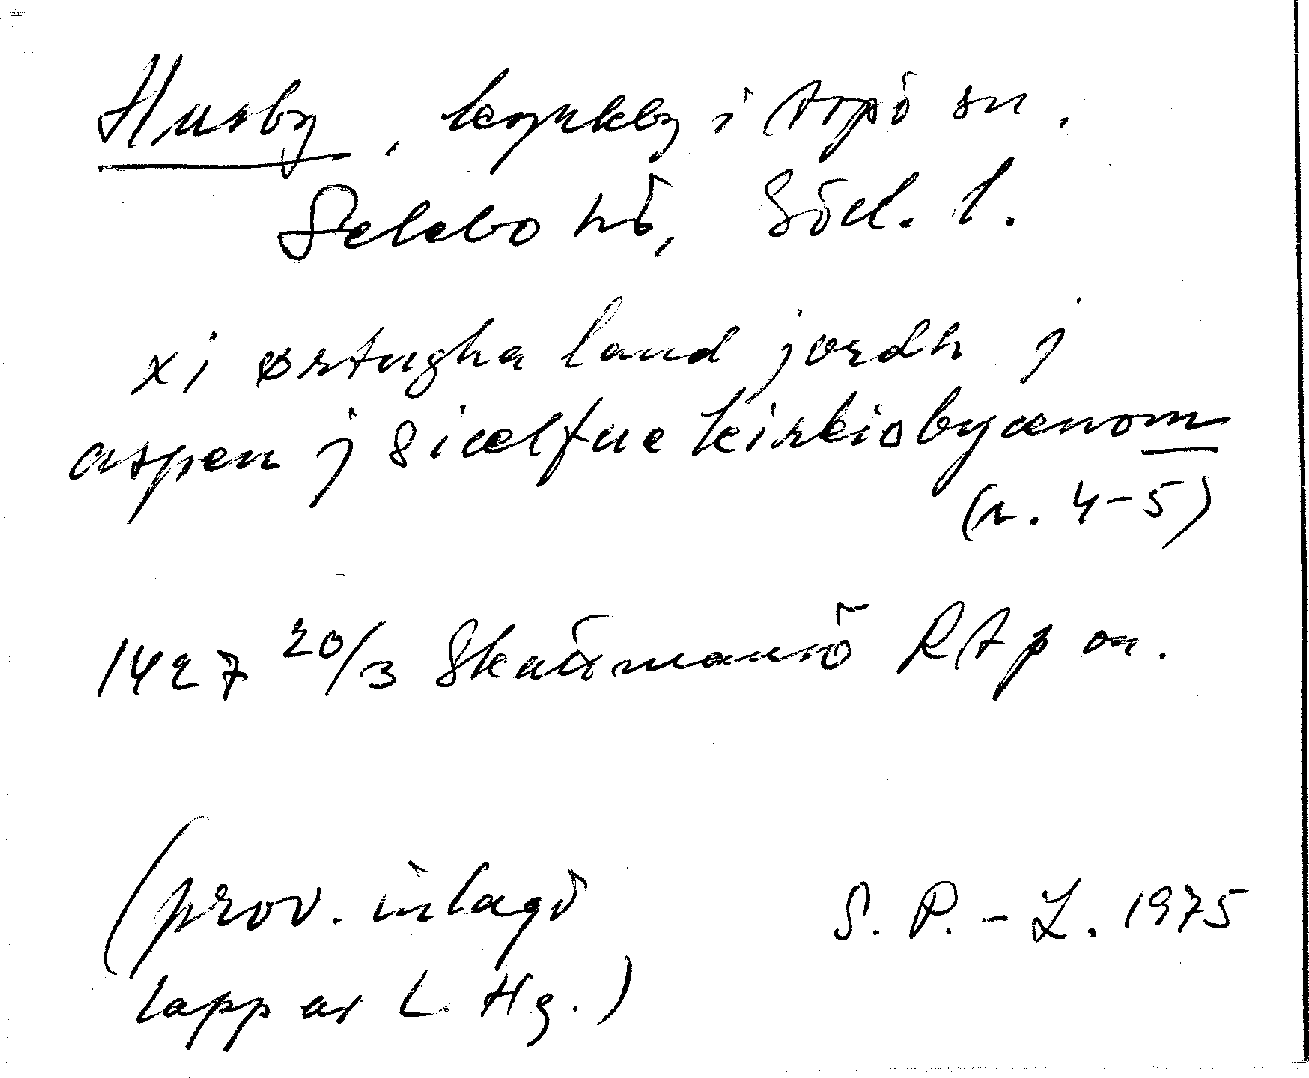 Husby, kyrkby i Aspö sn.
Selebo hd, Söd. l.
xi ørtugha land jordh j
aspen j siælfue kirkiobyænom
(r. 4-5)
1427 20/3 Skåsmansö RAp or.
(prov. inlagd
lapp av L. Hg.)
S. P.-L. 1975